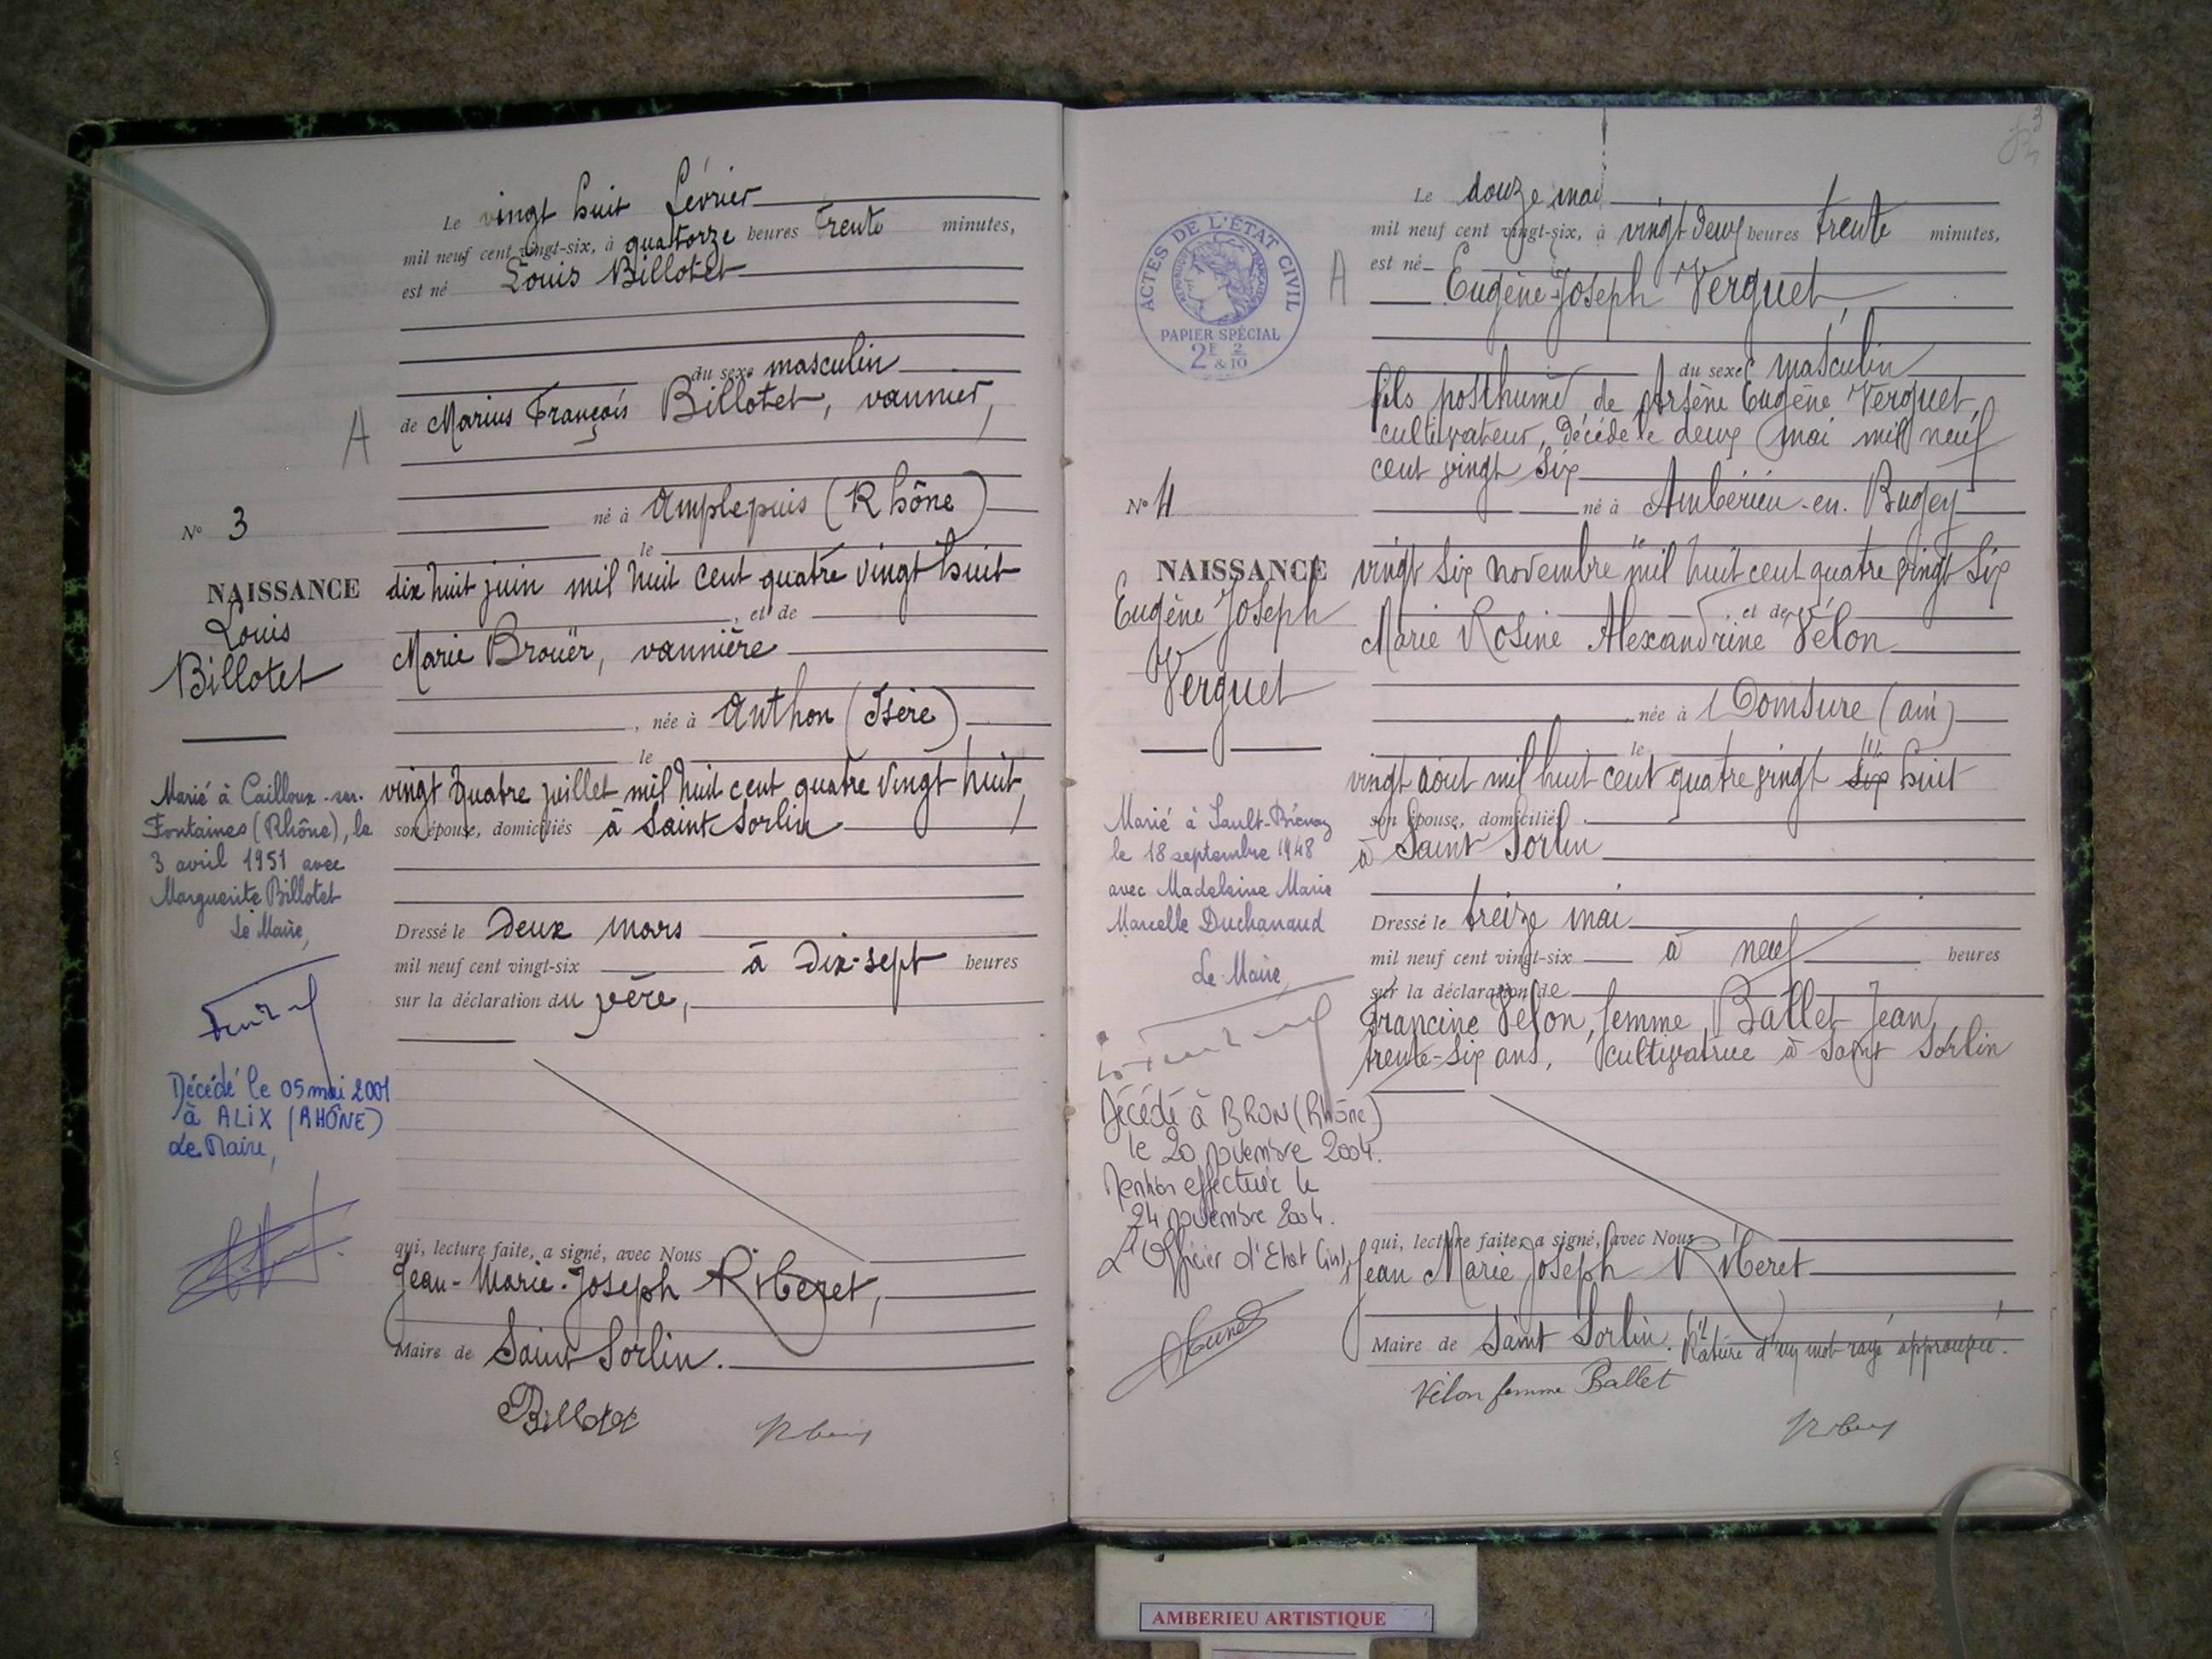 Le vingt huit février
mil neuf cent vingt-six, à quattorze heures trente minutes,
est né Louis Billotet
du sexe masculin
de Marius François Billotet, vannier,
A
né à Amplepuis (Rhône)
N° 3
le
NAISSANCE
dix huit juin mil huit cent quatre vingt huit
, et de
Louis
Billotet
Marie Brouër, vannière
, née à Anthon (Isère)
le
vingt quatre juillet mil huit cent quatre vingt huit,
son épouse, domiciliés à Saint-Sorlin
Marié à Cailloux-sur-
Fontaines (Rhône), le
3 avril 1951 avec
Marguerite Billotet
Le Maire,
Dressé le deux mars
mil neuf cent vingt-six à dix-sept heures
sur la déclaration du père,
Décédé le 05 mai 2001
à ALIX (RHÔNE)
Le Maire,
qui, lecture faite, a signé, avec Nous
Jean-Marie-Joseph Riberet,
Maire de Saint Sorlin.
Billotet
3
Le douze mai
mil neuf cent vingt-six, à vingt deux heures trente minutes,
est né
Eugène-Joseph Verguet,
ACTES DE L'ÉTAT CIVIL
RÉPUBLIQUE FRANÇAISE
PAPIER SPÉCIAL
2F & 2/10
A
du sexe masculin
fils posthume de Arsène Eugène Verguet,
cultivateur, décédé le deux mai mil neuf
cent vingt six
né à Ambérieu-en-Bugey
N° 4
le
NAISSANCE
vingt six novembre mil huit cent quatre vingt six
et de
Eugène Joseph
Verguet
Marie Rosine Alexandrine Vélon
née à Domsure (ain)
le
vingt aout mil huit cent quatre vingt six (1) huit
son épouse, domiciliés
à Saint Sorlin
Marié à Sault-Brénaz
le 18 septembre 1948
avec Madeleine Marie
Marcelle Duchanaud
Le Maire,
Dressé le treize mai
mil neuf cent vingt-six à neuf heures
sur la déclaration de
Francine Vélon, femme Ballet Jean,
trente-six ans, cultivatrice à Saint Sorlin
Décédé à BRON (Rhône)
le 20 novembre 2004.
Mention effectuée le
24 novembre 2004.
L'Officier d'Etat Civil,
qui, lecture faite, a signé, avec Nous
Jean Marie Joseph Riberet
Maire de Saint Sorlin. (1) Rature d'un mot rayé approuvée.
Vélon femme Ballet
AMBERIEU ARTISTIQUE